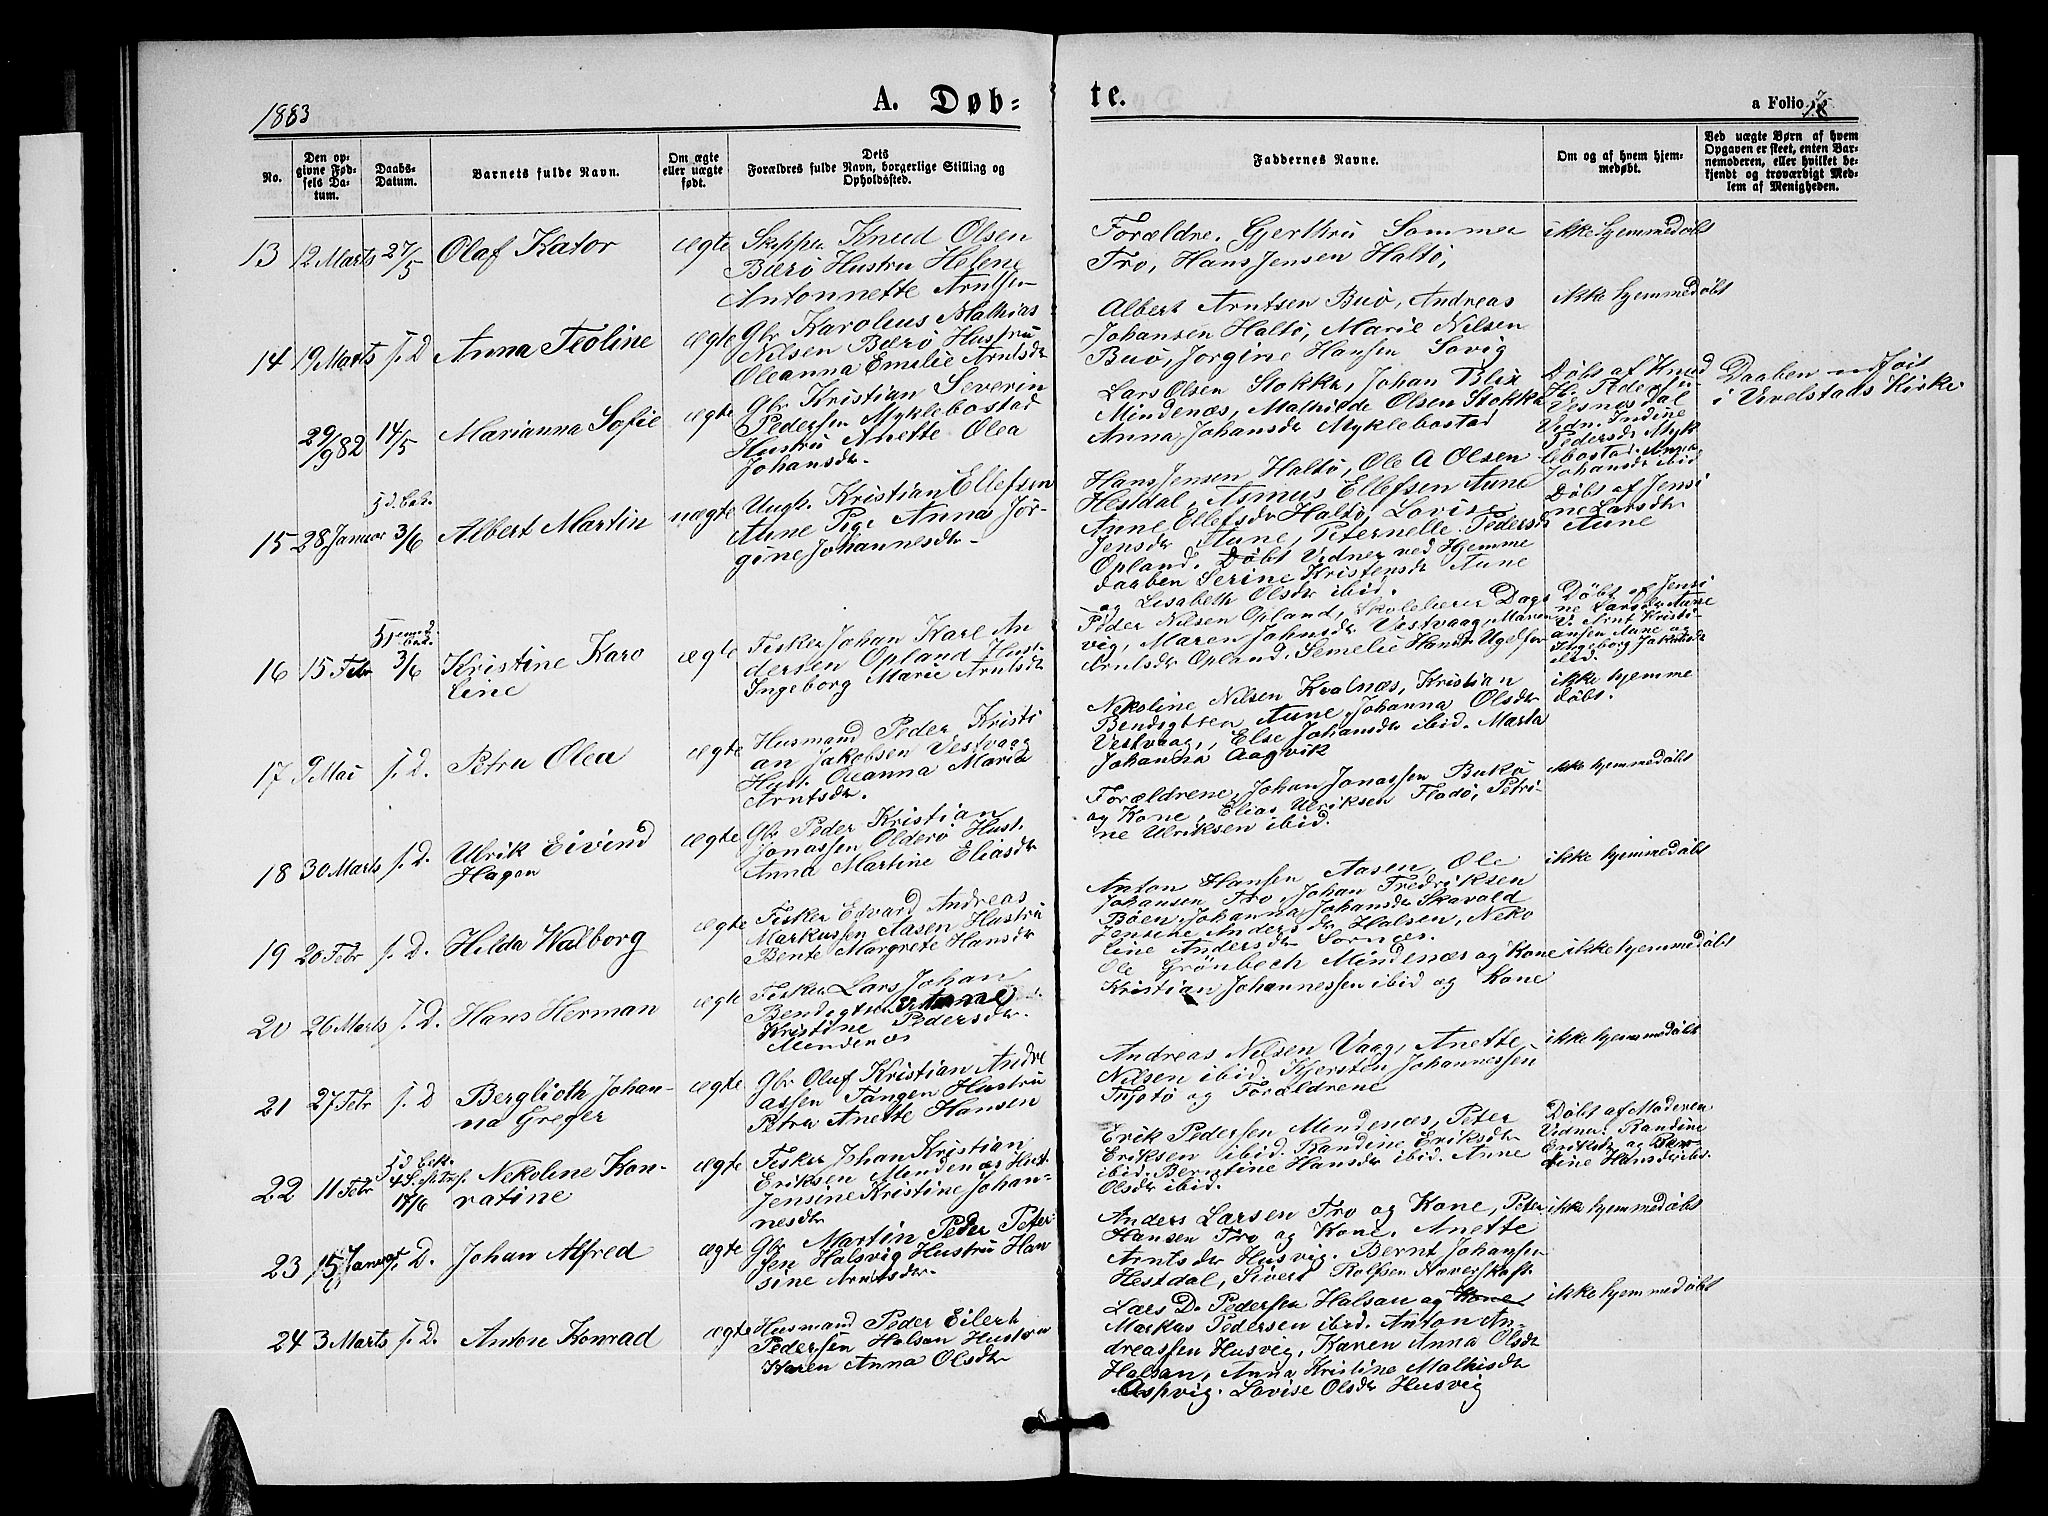 1883
A. Døb-
te.
a Folio
No.
Den op-
givne Fød-
sels Da-
tum.
Daabs-
Datum.
Barnets fulde Navn.
Om ægte
eller uægte
født.
Dets
Forældres fulde Navn, borgerlige Stilling og
Opholdssted.
Faddernes Navne.
Om og af hvem hjem-
medøbt.
Ved uægte Børn af hvem
Opgaven er skeet, enten Bar-
nemoderen, eller hvilket be-
kjendt og troværdigt Med-
lem af Menigheden.
13 12 Marts 27/5 Olaf Kator ægte
Knud Olsen
Bærø Hustru Helene
Antonnette Arntsen
Forældre. Gjerthru Sommer
Tro, Hans Jensen Haltø,
ikke hjemmedøbt
14 19 Marts s. D Anna Teoline ægte
Gbr Karolius Mathias
Nilsen Bærø Hustru
Oleanna Emilie Arntsdr
Albert Arntsen Buø, Andreas
Johansen Haltø, Marie Nilsen
Buø, Jorgine Hansen Søvig
ikke hjemmedøbt
29/9 82 14/5 Marianna Sofie ægte
Gbr Kristian Severin
Pedersen Myklebostad
Hustru Anette Olea
Johansdr.
Lars Olsen Stokka, Johan Blix
Mindenæs, Mathilde Olsen Stokka
Anna Johansdr Myklebostad
Døbt af Knud
H. Pedersen
Vesnes dal
Vidn. Indine
Pedersdr Myk
lebostad. Anna
Johansdr ibid
Daaben udført
i Vevelstads Kirke
15 28 Januar 5 d. bek. 3/6 Albert Martin uægte
Ungk. Kristian Ellefsen
Aune Pige Anna Jør-
gine Johannesdr
Hans Jensen Haltø, Ole A Olsen
Hestdal, Asmus Ellefsen Aune
Anne Ellefsdr Haltø, Lovise
Jensdr Aune, Peternelle Pedersdr
Opland. Døbt Vidner ved Hjemme
daaben Serine Kristensdr Aune
og Lisabeth Olsdr ibid.
Døbt af Jensi
ne Larsdr
Aune
16 15 Febr 3/6 Kristine Karo
line ægte
Fisker Johan Karl An
dersen Opland Hust.
Ingeborg Marie Arntsdr
Peder Nilsen Opland, Skolelærer Dags
vig, Maren Johnsdr Vestvaag, Maren
Arntsdr Opland. Semelie Hansdr
Døbt af Jensi
ne Larsdr Aune
V. Arnt Kristi
ansen Aune og
Ingeborg Jakobsdr
ibid.
17 9 Mai s. D. Petra Olea ægte
Husmand Peder Kristi
an Jakobsen Vestvaag
Hust. Oleanna Maria
Arntsdr.
Nekoline Nilsen Kvalnæs, Kristian
Bendigtsen Aune, Johanna Olsdr
Vestvaag, Else Johansdr ibid. Marta
Johanna Aagvik
ikke hjemme
døbt.
18 30 Marts s. D. Ulrik Eivind
Hagen ægte
Gbr Peder Kristian
Jonassen Olderø Hust.
Anna Martine Eliasdr
Forældrene, Johan Jonassen Bukø
og Kone, Elias Ulriksen Fladø, Petri-
ne Ulriksen ibid.
ikke hjemmedøbt
19 20 Febr s. D. Hilda Walborg ægte
Fisker Edvard Andreas
Markussen Aasen Hustru
Bente Margrete Hansdr
Anton Hansen Aasen, Ole
Johansen Tro, Johan Fredriksen
Bøen, Johanna Johansdr Skavold
Jensine Andersdr Halsen, Neko
line Andersdr Sornæs.
ikke hjemmedøbt
20 26 Marts s. D. Hans Herman ægte
Fisker Lars Johan
Bendigtsen
Kristine Pedersdr.
Mindenæs
Ole Grönbech Mindenæs og Kone
Kristian Johannessen ibid og Kone
ikke hjemmedøbt
21 27 Febr s. D Berglioth Johan-
na Greger ægte
Gbr Oluf Kristian Andre
assen Tangen Hustru
Petra Anette Hansen
Andreas Nilsen Vaag, Anette
Nilsen ibid. Kjersten Johannessen
Tjøtø og Forældrene
ikke hjemmedøbt
22 11 Febr 5 d. bek. 17/6 Nekoline Kon-
ratine ægte
Fisker Johan Kristian
Eriksen Mindenæs Hust.
Jensine Kristine Johan-
nesdr
Erik Pedersen Mindenæs, Peter
Eriksen ibid. Randine Eriksdr
ibid. Berntine Hansdr ibid. Anne
Olsdr ibid.
Døbt af Moderen
Vidner. Randine
Eriksdr og Bern
tine Hansdr ibd.
23 15 Januar s. D. Johan Alfred ægte
Gbr Martin Peder Peter-
sen Halsvig Hustru Han
sine Arntsdr.
Anders Larsen Tro og Kone, Peter
Hansen Tro og Kone. Anette
Arntsdr Husvig. Bernt Johansen
Hestdal, Sivert Rolfsen
ikke hjemmedøbt
24 3 Marts s. D. Anton Konrad ægte
Husmand Peder Eilert
Pedersen Halsan Hustru
Karen Anna Olsdr
Lars D. Pedersen Halsan og Kone
Markus Pedersen ibid. Anton An-
dreassen Husvig, Karen Anna Olsdr
Halsan, Anna Kristine Mathisdr
Aspvig. Lovise Olsdr Husvig
ikke hjemmedøbt